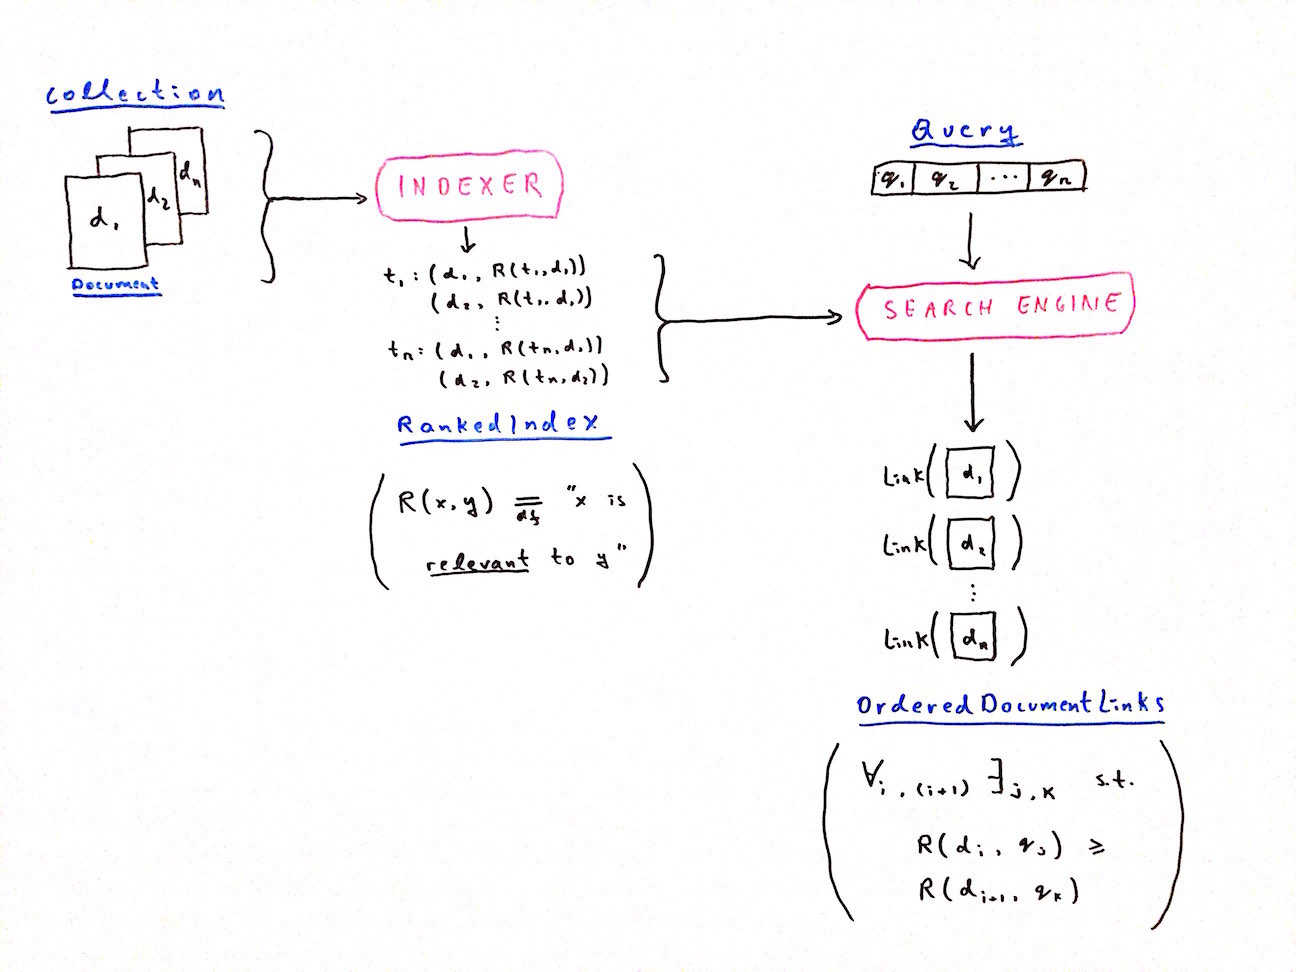 Collection
d₁
d₂
dₙ
Document
INDEXER
t₁: (d₁, R(t₁,d₁))
(d₂, R(t₁,d₁))
⋮
tₙ: (d₁, R(tₙ,d₁))
(d₂, R(tₙ,d₂))
RankedIndex
R(x,y) ≡df "x is
relevant to y"
Query
q₁ q₂ ... qₙ
SEARCH ENGINE
Link( d₁ )
Link( d₂ )
⋮
Link( dₙ )
OrderedDocumentLinks
∀i,(i+1) ∃j,k s.t.
R(dᵢ, qⱼ) ≥
R(dᵢ₊₁, qₖ)